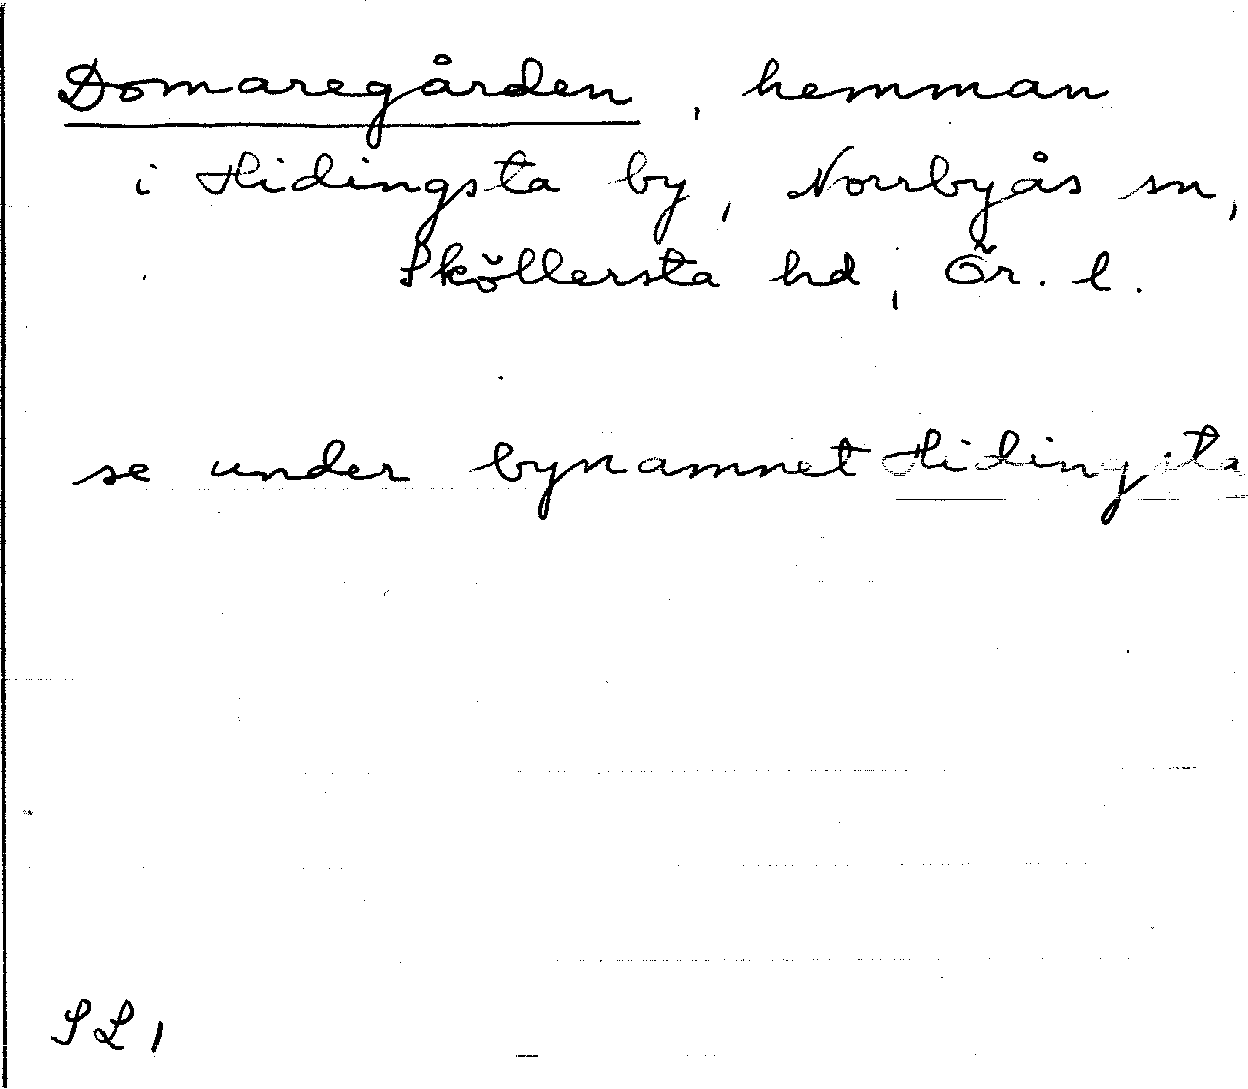 Domaregården, hemman
i Hidingsta by, Norrbyås sn,
Sköllersta hd, Ör. l.
se under bynamnet Hidingsta
SL,